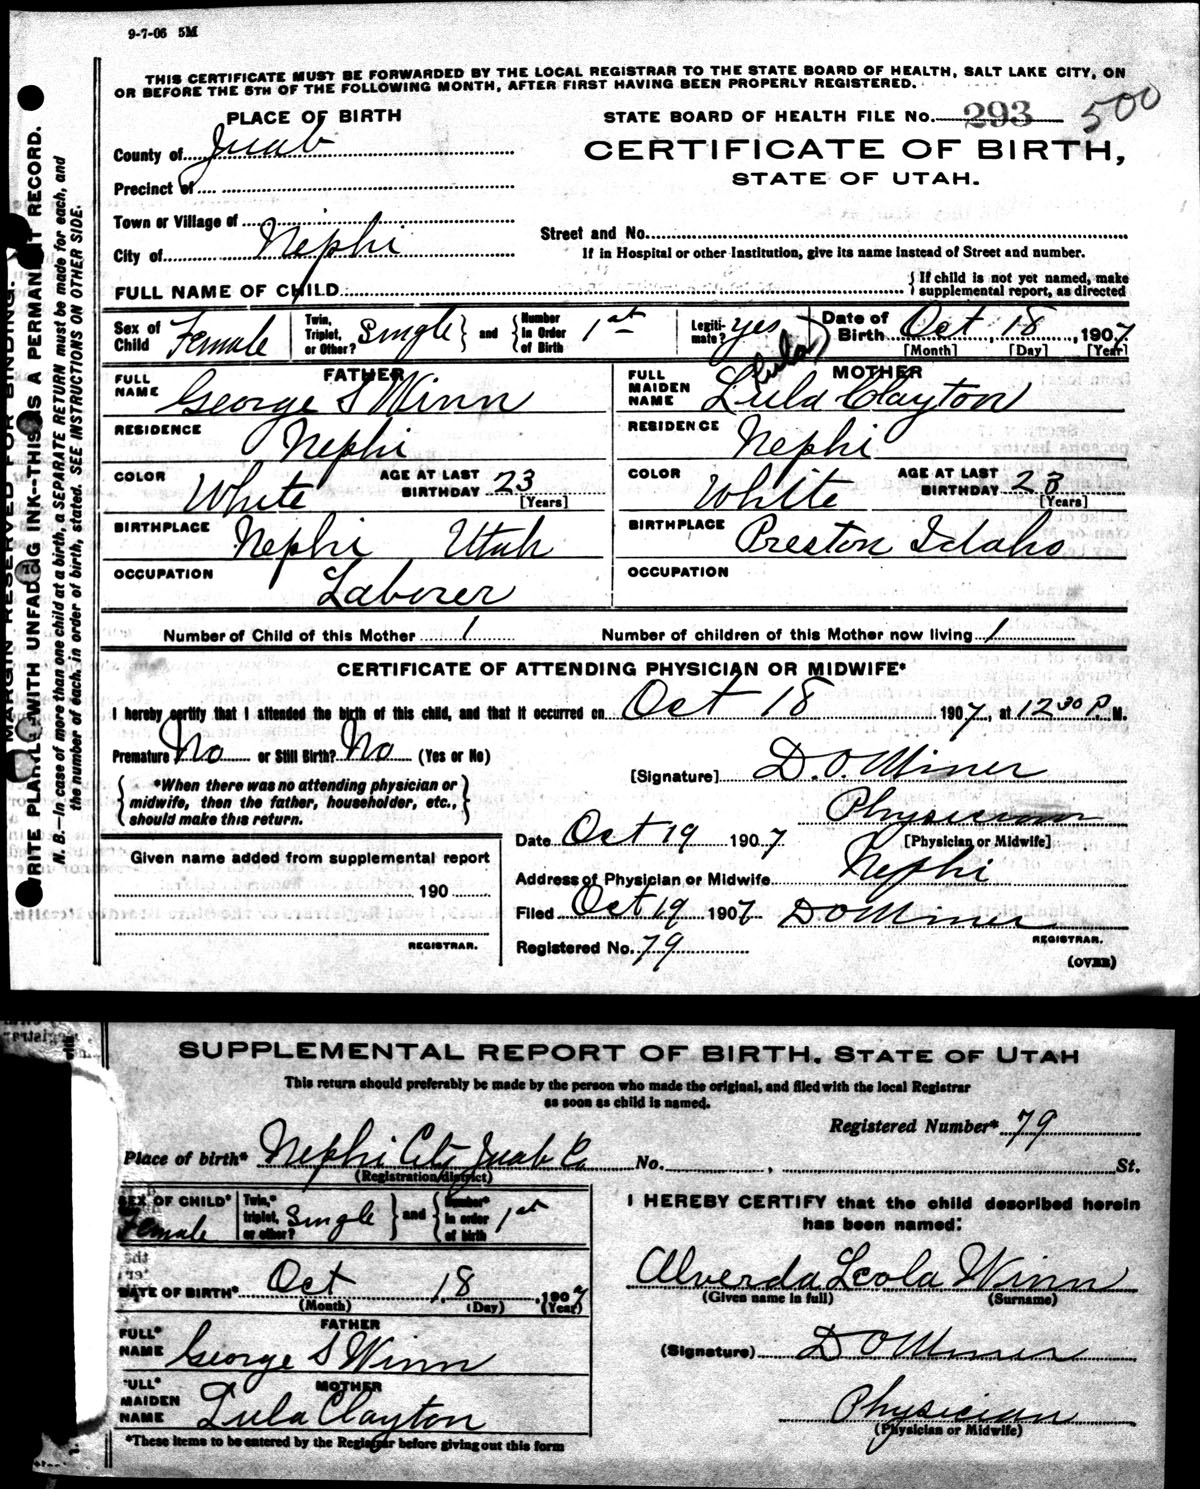 9-7-06 5M
THIS CERTIFICATE MUST BE FORWARDED BY THE LOCAL REGISTRAR TO THE STATE BOARD OF HEALTH, SALT LAKE CITY, ON
OR BEFORE THE 5TH OF THE FOLLOWING MONTH, AFTER FIRST HAVING BEEN PROPERLY REGISTERED.
PLACE OF BIRTH
STATE BOARD OF HEALTH FILE No. 293 500
County of Juab
CERTIFICATE OF BIRTH,
STATE OF UTAH.
Precinct of
Town or Village of
Street and No.
City of Nephi
If in Hospital or other Institution, give its name instead of Street and number.
FULL NAME OF CHILD
{ If child is not yet named, make
supplemental report, as directed
Sex of Child Female
Twin, Triplet, or Other? Single } and { Number in Order of Birth 1st
Legitimate? yes
Date of Birth Oct 18, 1907
[Month] [Day] [Year]
FATHER
FULL NAME George S Winn
RESIDENCE Nephi
COLOR White
AGE AT LAST BIRTHDAY 23
[Years]
BIRTHPLACE Nephi Utah
OCCUPATION Laborer
MOTHER
Lula
FULL MAIDEN NAME Lula Clayton
RESIDENCE Nephi
COLOR White
AGE AT LAST BIRTHDAY 23
[Years]
BIRTHPLACE Preston Idaho
OCCUPATION
Number of Child of this Mother 1
Number of children of this Mother now living 1
CERTIFICATE OF ATTENDING PHYSICIAN OR MIDWIFE*
I hereby certify that I attended the birth of this child, and that it occurred on Oct 18 1907, at 12 30 P M.
Premature No or Still Birth? No (Yes or No)
[Signature] D. O. Miner
{ *When there was no attending physician or
midwife, then the father, householder, etc.,
should make this return. }
Physician
[Physician or Midwife]
Date Oct 19 1907
Address of Physician or Midwife Nephi
Filed Oct 19 1907 D O Miner
REGISTRAR.
Registered No. 79
(OVER)
Given name added from supplemental report
190
REGISTRAR.
MARGIN RESERVED FOR BINDING.
WRITE PLAINLY WITH UNFADING INK--THIS IS A PERMANENT RECORD.
N. B.—In case of more than one child at a birth, a SEPARATE RETURN must be made for each, and
the number of each, in order of birth, stated. SEE INSTRUCTIONS ON OTHER SIDE.
SUPPLEMENTAL REPORT OF BIRTH. STATE OF UTAH
This return should preferably be made by the person who made the original, and filed with the local Registrar
as soon as child is named.
Registered Number* 79
Place of birth* Nephi City Juab Co No. , St.
(Registration district)
SEX OF CHILD* Female
Twin,* triplet, or other? Single } and { Number* in order of birth 1st
DATE OF BIRTH* Oct 18, 1907
(Month) (Day) (Year)
FATHER
FULL* NAME George S Winn
MOTHER
FULL* MAIDEN NAME Lula Clayton
*These items to be entered by the Registrar before giving out this form
I HEREBY CERTIFY that the child described herein
has been named:
Alverda Leola Winn
(Given name in full) (Surname)
(Signature) D O Miner
Physician
(Physician or Midwife)